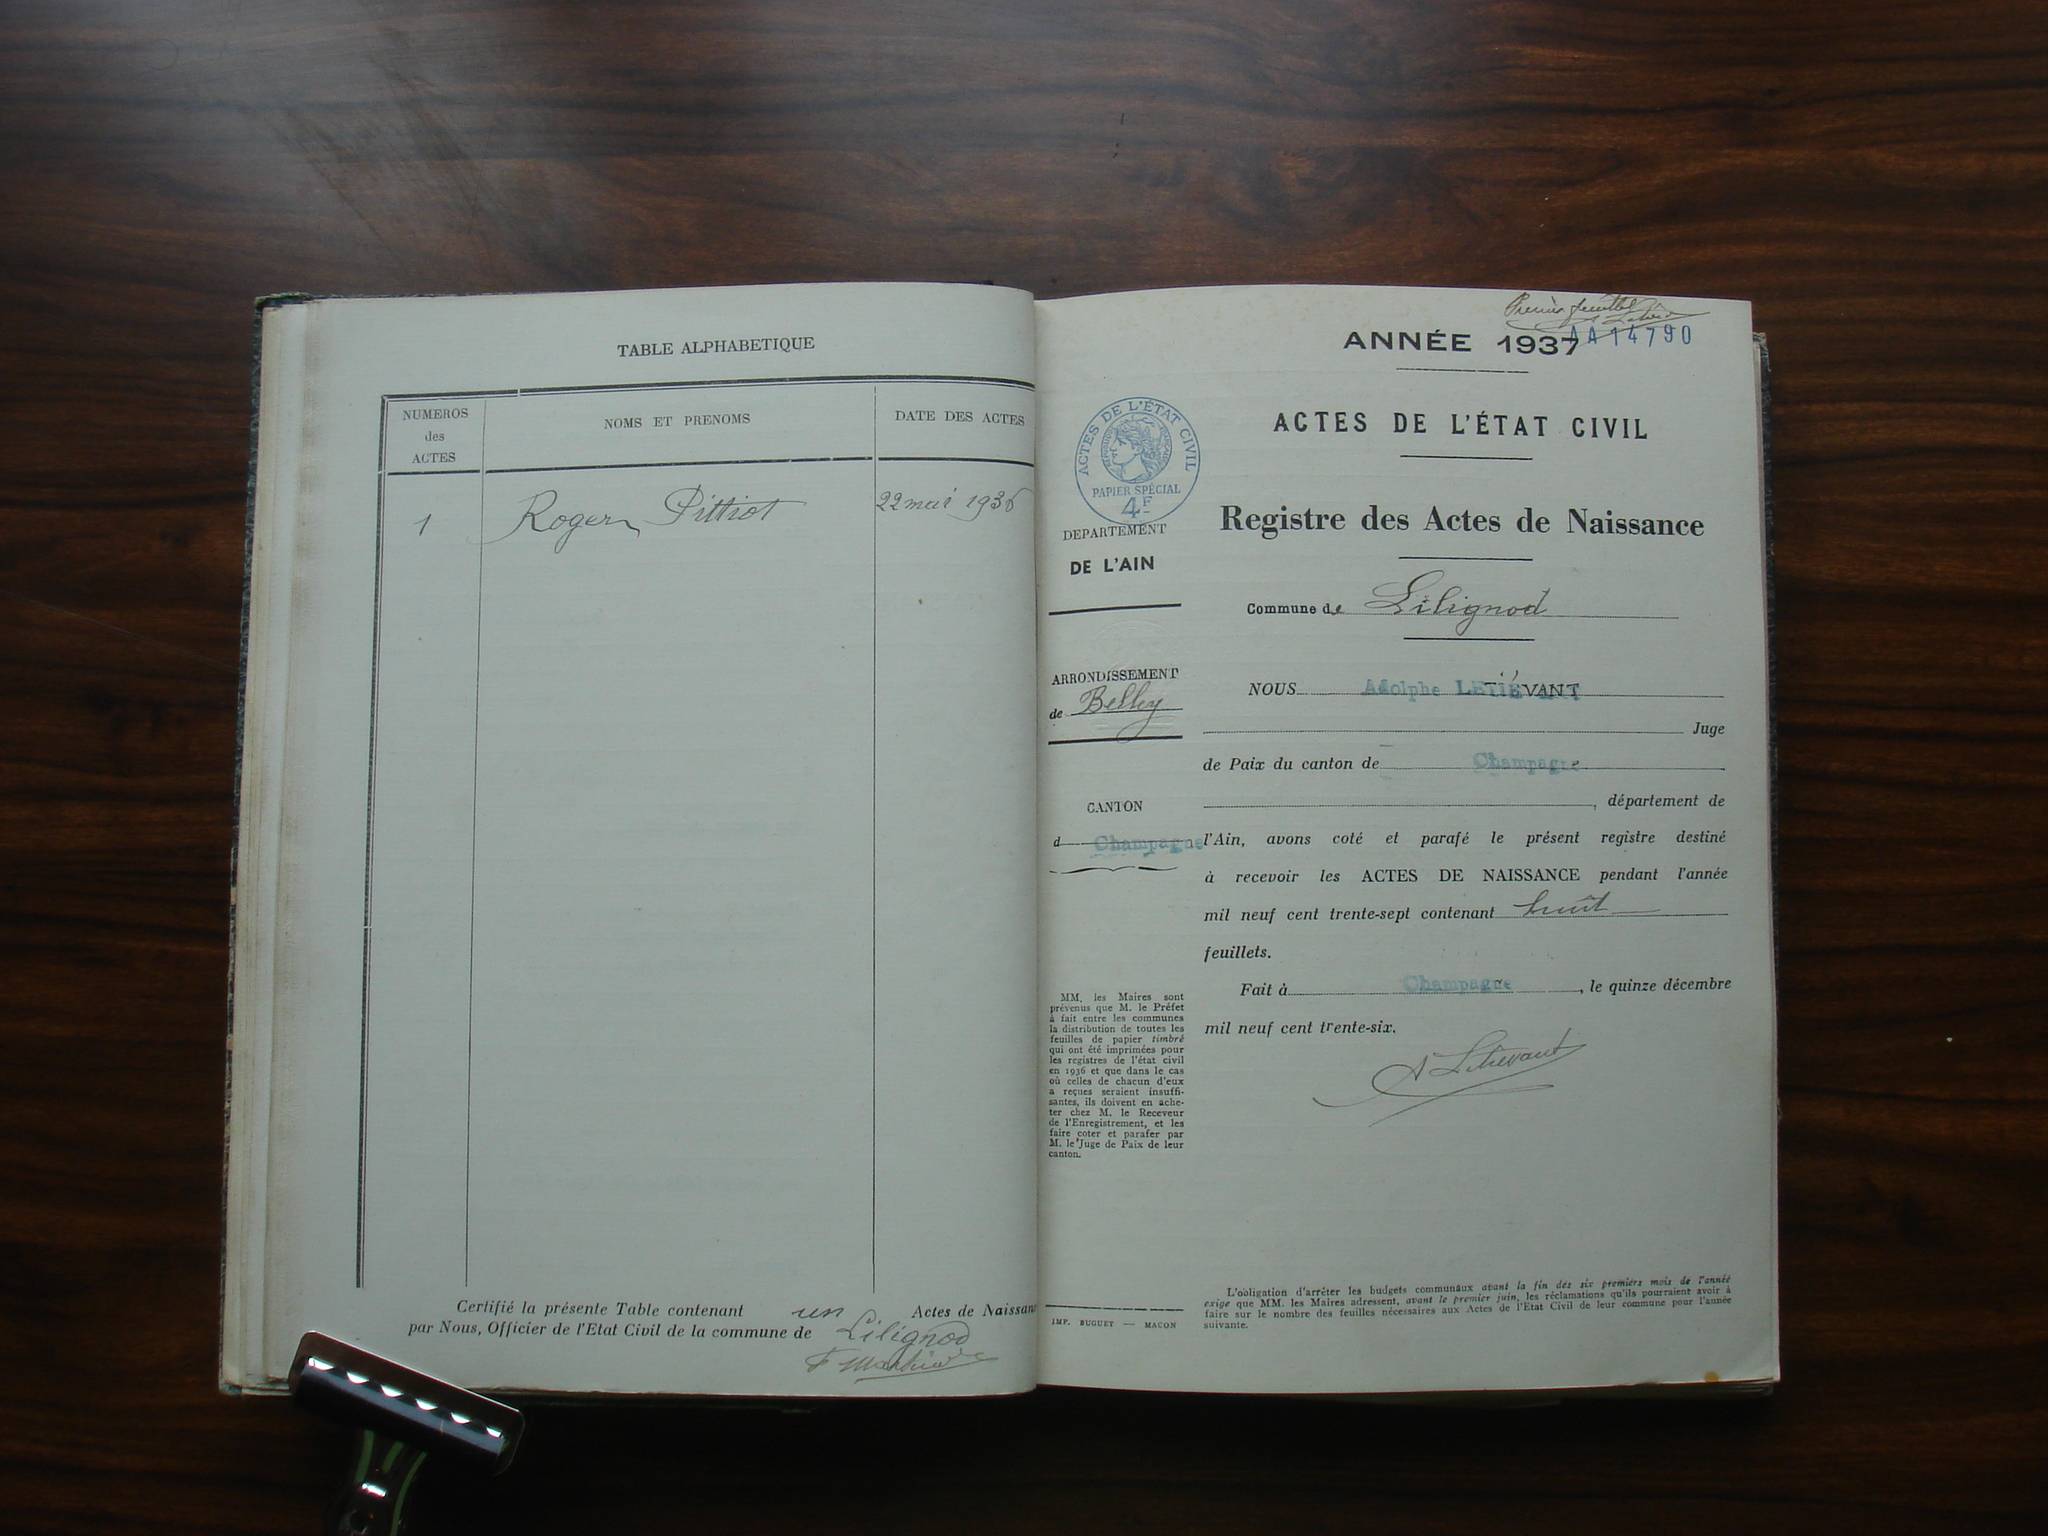 TABLE ALPHABETIQUE
NUMEROS
des
ACTES
NOMS ET PRENOMS
DATE DES ACTES
1
Roger Pittiot
22 mai 1936
Certifié la présente Table contenant un Actes de Naissan
par Nous, Officier de l'Etat Civil de la commune de Lilignod
AA 14790
ANNÉE 1937
ACTES DE L'ÉTAT CIVIL
RÉPUBLIQUE FRANÇAISE
PAPIER SPÉCIAL
4F
DEPARTEMENT
DE L'AIN
ARRONDISSEMENT
de Belley
CANTON
d Champagne
MM. les Maires sont
prévenus que M. le Préfet
à fait entre les communes
la distribution de toutes les
feuilles de papier timbré
qui ont été imprimées pour
les registres de l'état civil
en 1936 et que dans le cas
où celles de chacun d'eux
a reçues seraient insuffi-
santes, ils doivent en ache-
ter chez M. le Receveur
de l'Enregistrement, et les
faire coter et parafer par
M. le Juge de Paix de leur
canton.
IMP. BUGUET — MACON
ACTES DE L'ÉTAT CIVIL
Registre des Actes de Naissance
Commune de Lilignod
NOUS Adolphe LETIÉVANT
Juge
de Paix du canton de Champagne
, département de
l'Ain, avons coté et parafé le présent registre destiné
à recevoir les ACTES DE NAISSANCE pendant l'année
mil neuf cent trente-sept contenant huit
feuillets.
Fait à Champagne, le quinze décembre
mil neuf cent trente-six.
A Letiévant
L'oobligation d'arrêter les budgets communaux avant la fin des six premiers mois de l'année
exige que MM. les Maires adressent, avant le premier juin, les réclamations qu'ils pourraient avoir à
faire sur le nombre des feuilles nécessaires aux Actes de l'Etat Civil de leur commune pour l'année
suivante.